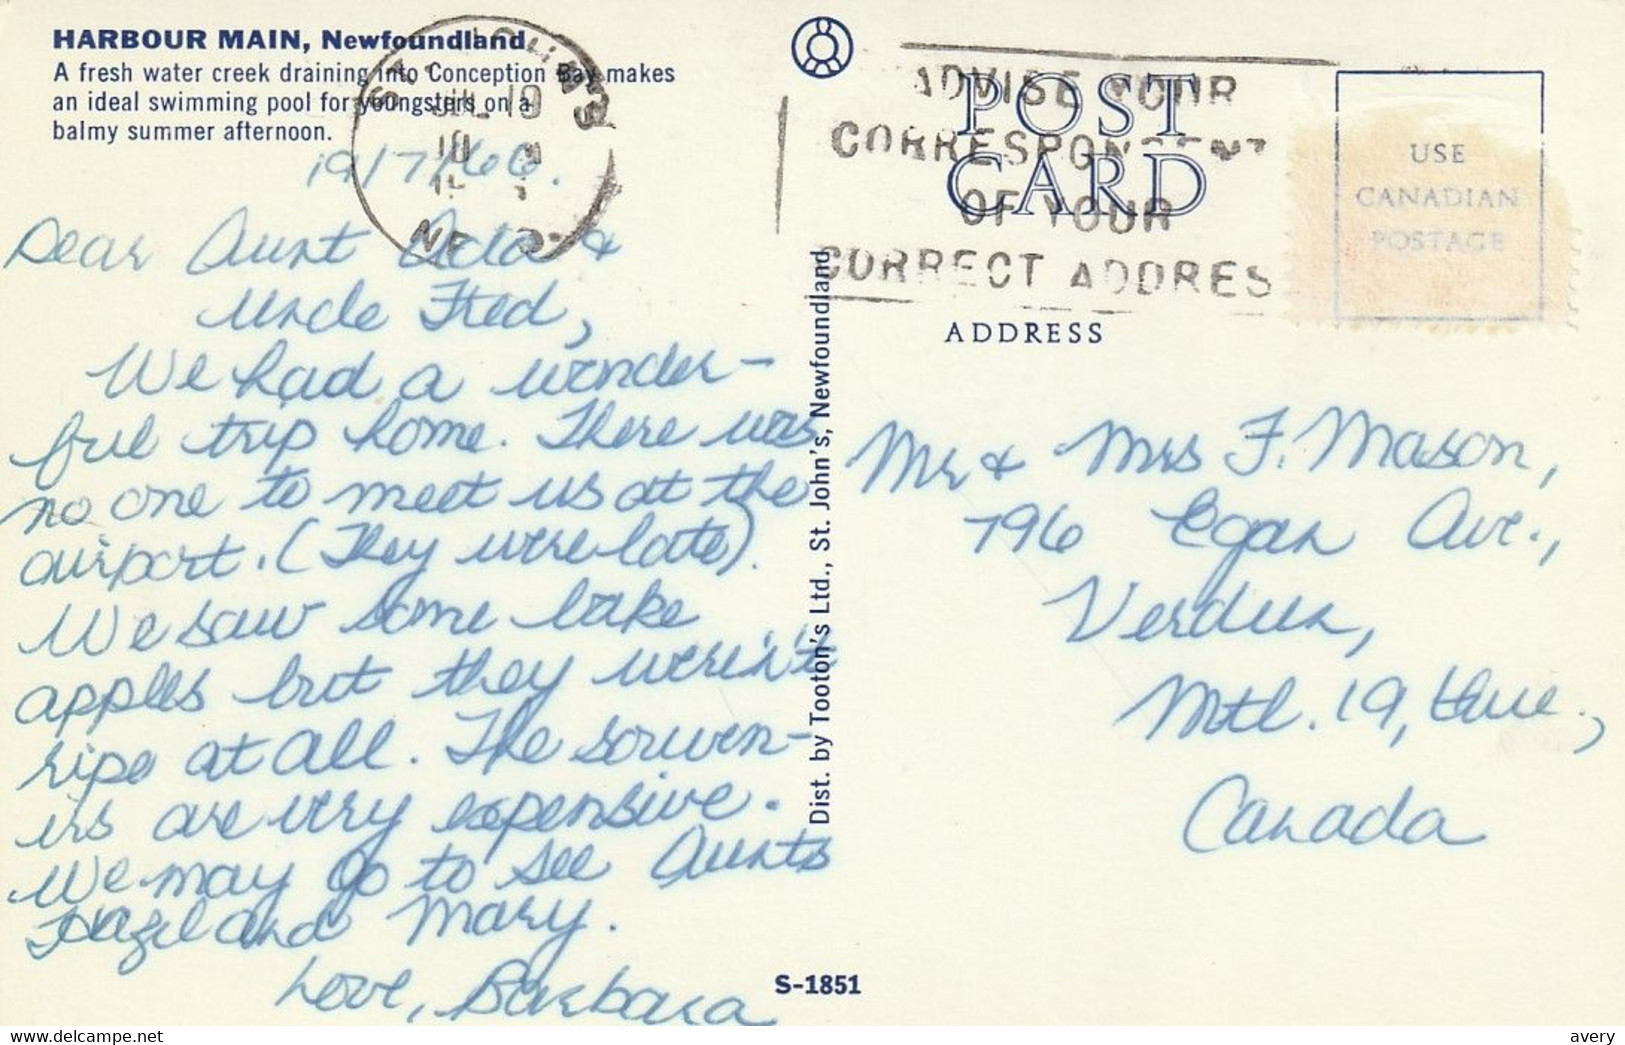 HARBOUR MAIN, Newfoundland
A fresh water creek draining into Conception Bay makes
an ideal swimming pool for youngsters on a
balmy summer afternoon.
19/7/66.
Dear Aunt Ada &
Uncle Fred,
We had a wonder-
ful trip home. There was
no one to meet us at the
airport. (They were late).
We saw some bake
apples but they weren't
ripe at all. The souven-
irs are very expensive.
We may go to see Aunts
Hazel and Mary.
Love, Barbara
ST. JOHN'S
JUL 19
NF
ADVISE YOUR
CORRESPONDENT
OF YOUR
CORRECT ADDRES
POST
CARD
USE
CANADIAN
POSTAGE
ADDRESS
Mr & Mrs F. Mason,
796 Egan Ave.,
Verdun,
Mtl. 19, Que.,
Canada
Dist. by Tooton's Ltd., St. John's, Newfoundland
S-1851
the-stamps on delcampe.net
avery